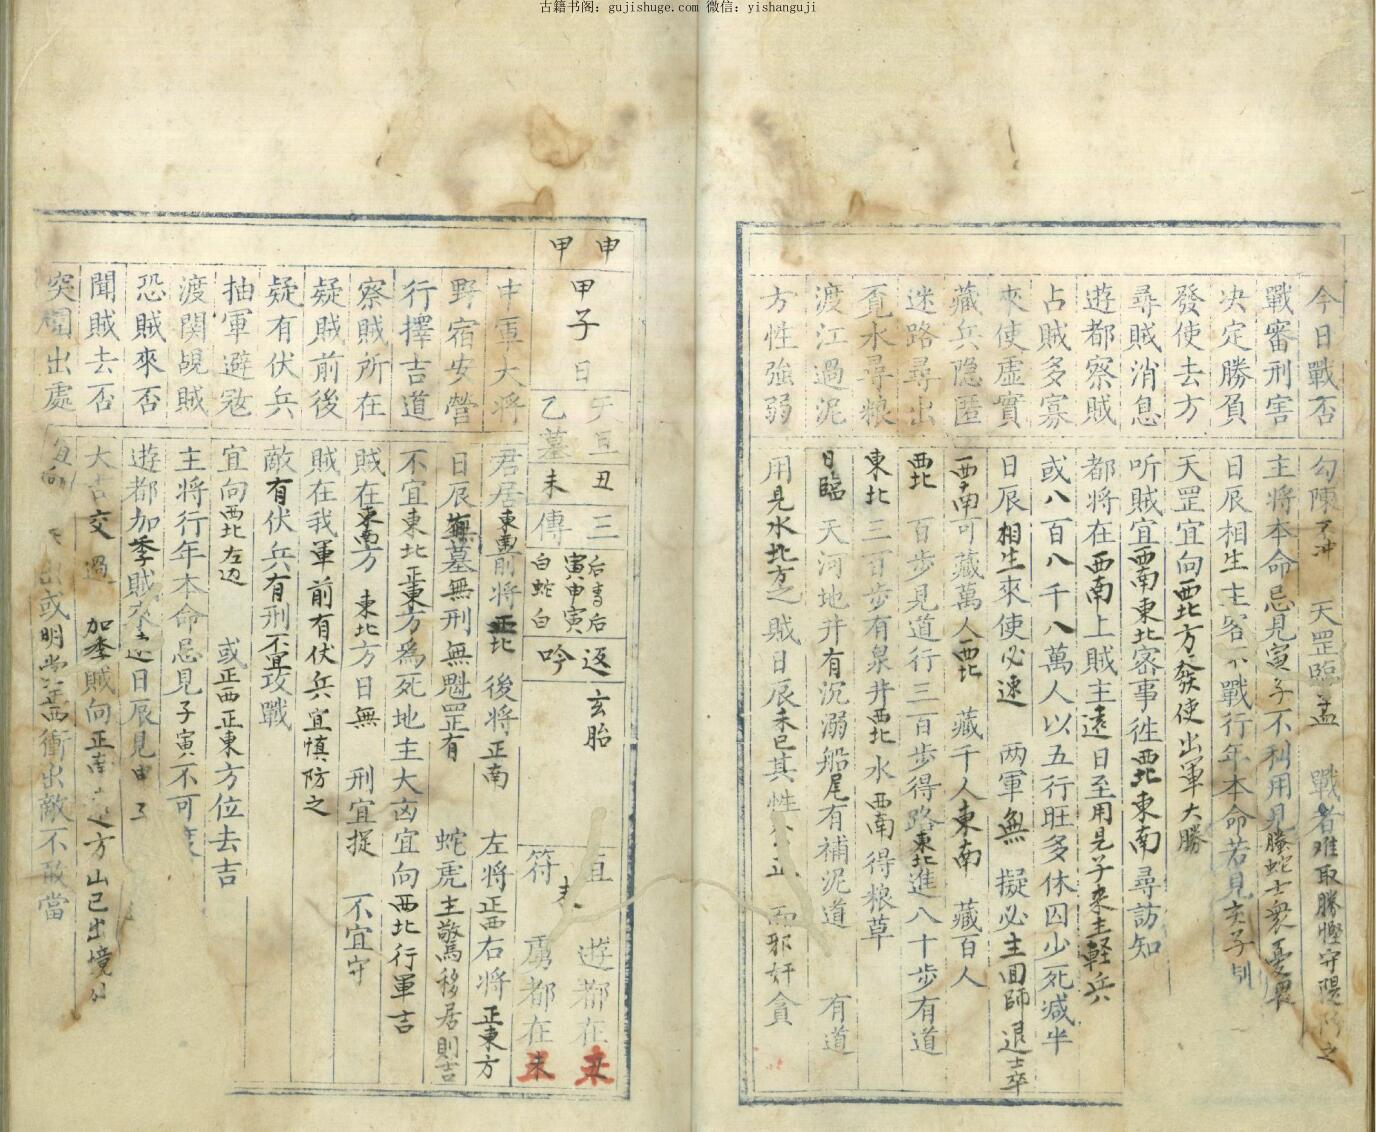 古籍书阁：gujishuge.com 微信：yishanguji
今日戰否 勾陳不冲 天罡臨孟 戰者难取勝慳守隄防之
戰審刑害 主將本命忌見寅子不利用見螣蛇士衆憂
决定勝負 日辰相生主客不戰行年本命若見亥子
發使去方 天罡宜向西北方發使出軍大勝
尋賊消息 听賊宜西南東北密事徃西北東南尋訪知
遊都察賊 都將在西南上賊主遠日至用見子來主軽兵
占賊多寡 或八百八千八萬人以五行旺多休囚少死减半
來使虛實 日辰相生來使必速 两軍無擬必主回師退士卒
藏兵隐匿 西南可藏萬人西北 藏千人東南 藏百人
迷路尋出 西北 百步見道行三百步得路東北進八十步有道
覔水尋粮 東北三百步有泉井西北水西南得粮草
渡江過泥 日臨 天河地井有沉溺船尾有補泥道 有道
方性強弱 用見水北方之賊日辰未巳其性 正 而邪奸貪
申 甲
甲子日
干旦丑 三 后青后 寅申寅 返 玄胎
乙墓未傳 白蛇白 吟
直 遊都在丑
符 虜都在未
中軍大將 君居東南前將正北 後將正南 左將正西右將正東方
野宿安營 日辰無墓無刑無魁罡有 蛇虎主驚移居則吉
行擇吉道 不宜東北正東方為死地主大凶宜向西北行軍吉
察賊所在 賊在東南方 東北方日無 刑宜捉 不宜守
疑賊前後 賊在我軍前有伏兵宜慎防之
疑有伏兵 敵有伏兵有刑不宜攻戰
抽軍避冦 宜向西北左边 或正西正東方位去吉
渡関覘賊 主將行年本命忌見子寅不可
恐賊來否 遊都加季賊來 日辰見申
聞賊去否 大吉交過 加季賊向正南 之方山已出境
突圍出處 宜向 出或明堂 衝出敵不敢當